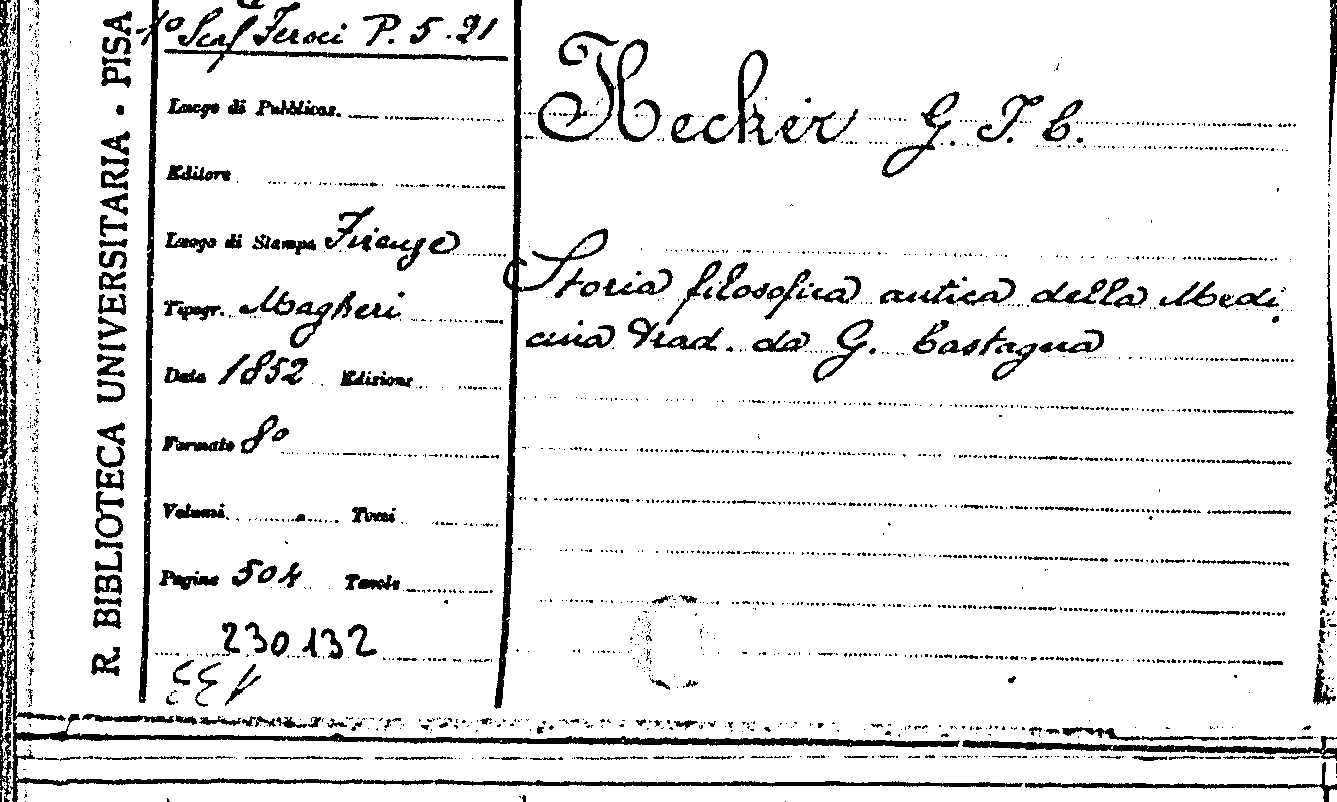 R. BIBLIOTECA UNIVERSITARIA - PISA
1º Scaf Feroci P. 5. 21
Luogo di Pubblicaz.
Editore
Luogo di Stampa Firenze
Tipogr. Magheri
Data 1852 Edizione
Formato 8º
Volumi Tomi
Pagine 504 Tavole
230132
Hecker G. F. C.
Storia filosofica antica della Medi
cina Trad. da G. Castagna